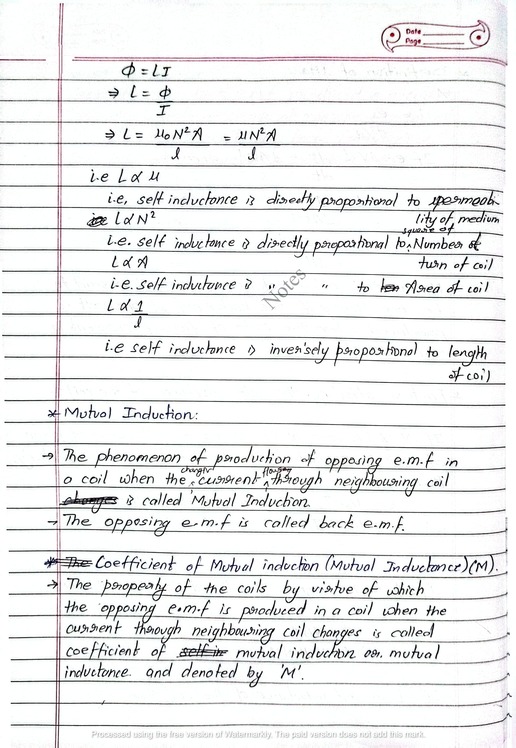 Date
Page
Φ = LI
⇒ L = Φ/I
⇒ L = μ₀N²A/l = μN²A/l
i.e L ∝ μ
i.e, self inductance is directly proportional to permeability of medium
L ∝ N²
i.e. self inductance is directly proportional to square of Number of turn of coil
L ∝ A
i.e. self inductance is " " to Area of coil
L ∝ 1/l
i.e self inductance is inversely proportional to length of coil
Notes
* Mutual Induction:
→ The phenomenon of production of opposing e.m.f in
a coil when the current flowing through neighbouring coil
changes is called 'Mutual Induction.
→ The opposing e.m.f is called back e.m.f.
* The Coefficient of Mutual induction (Mutual Inductance)(M).
→ The property of the coils by virtue of which
the opposing e.m.f is produced in a coil when the
current through neighbouring coil changes is called
coefficient of self in mutual induction or. mutual
inductance. and denoted by 'M'.
Processed using the free version of Watermarkly. The paid version does not add this mark.